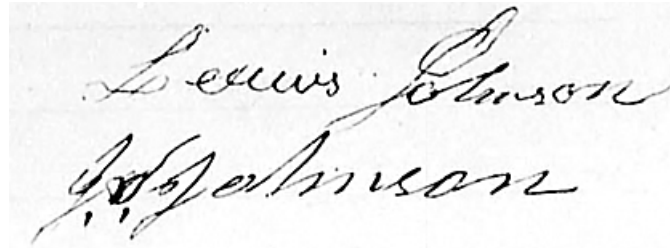 Lewis Johnson
Johnson